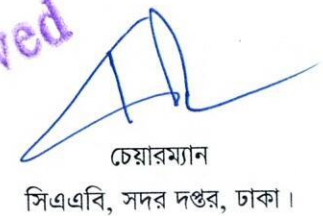 চেয়ারম্যান
সিএএবি, সদর দপ্তর, ঢাকা।